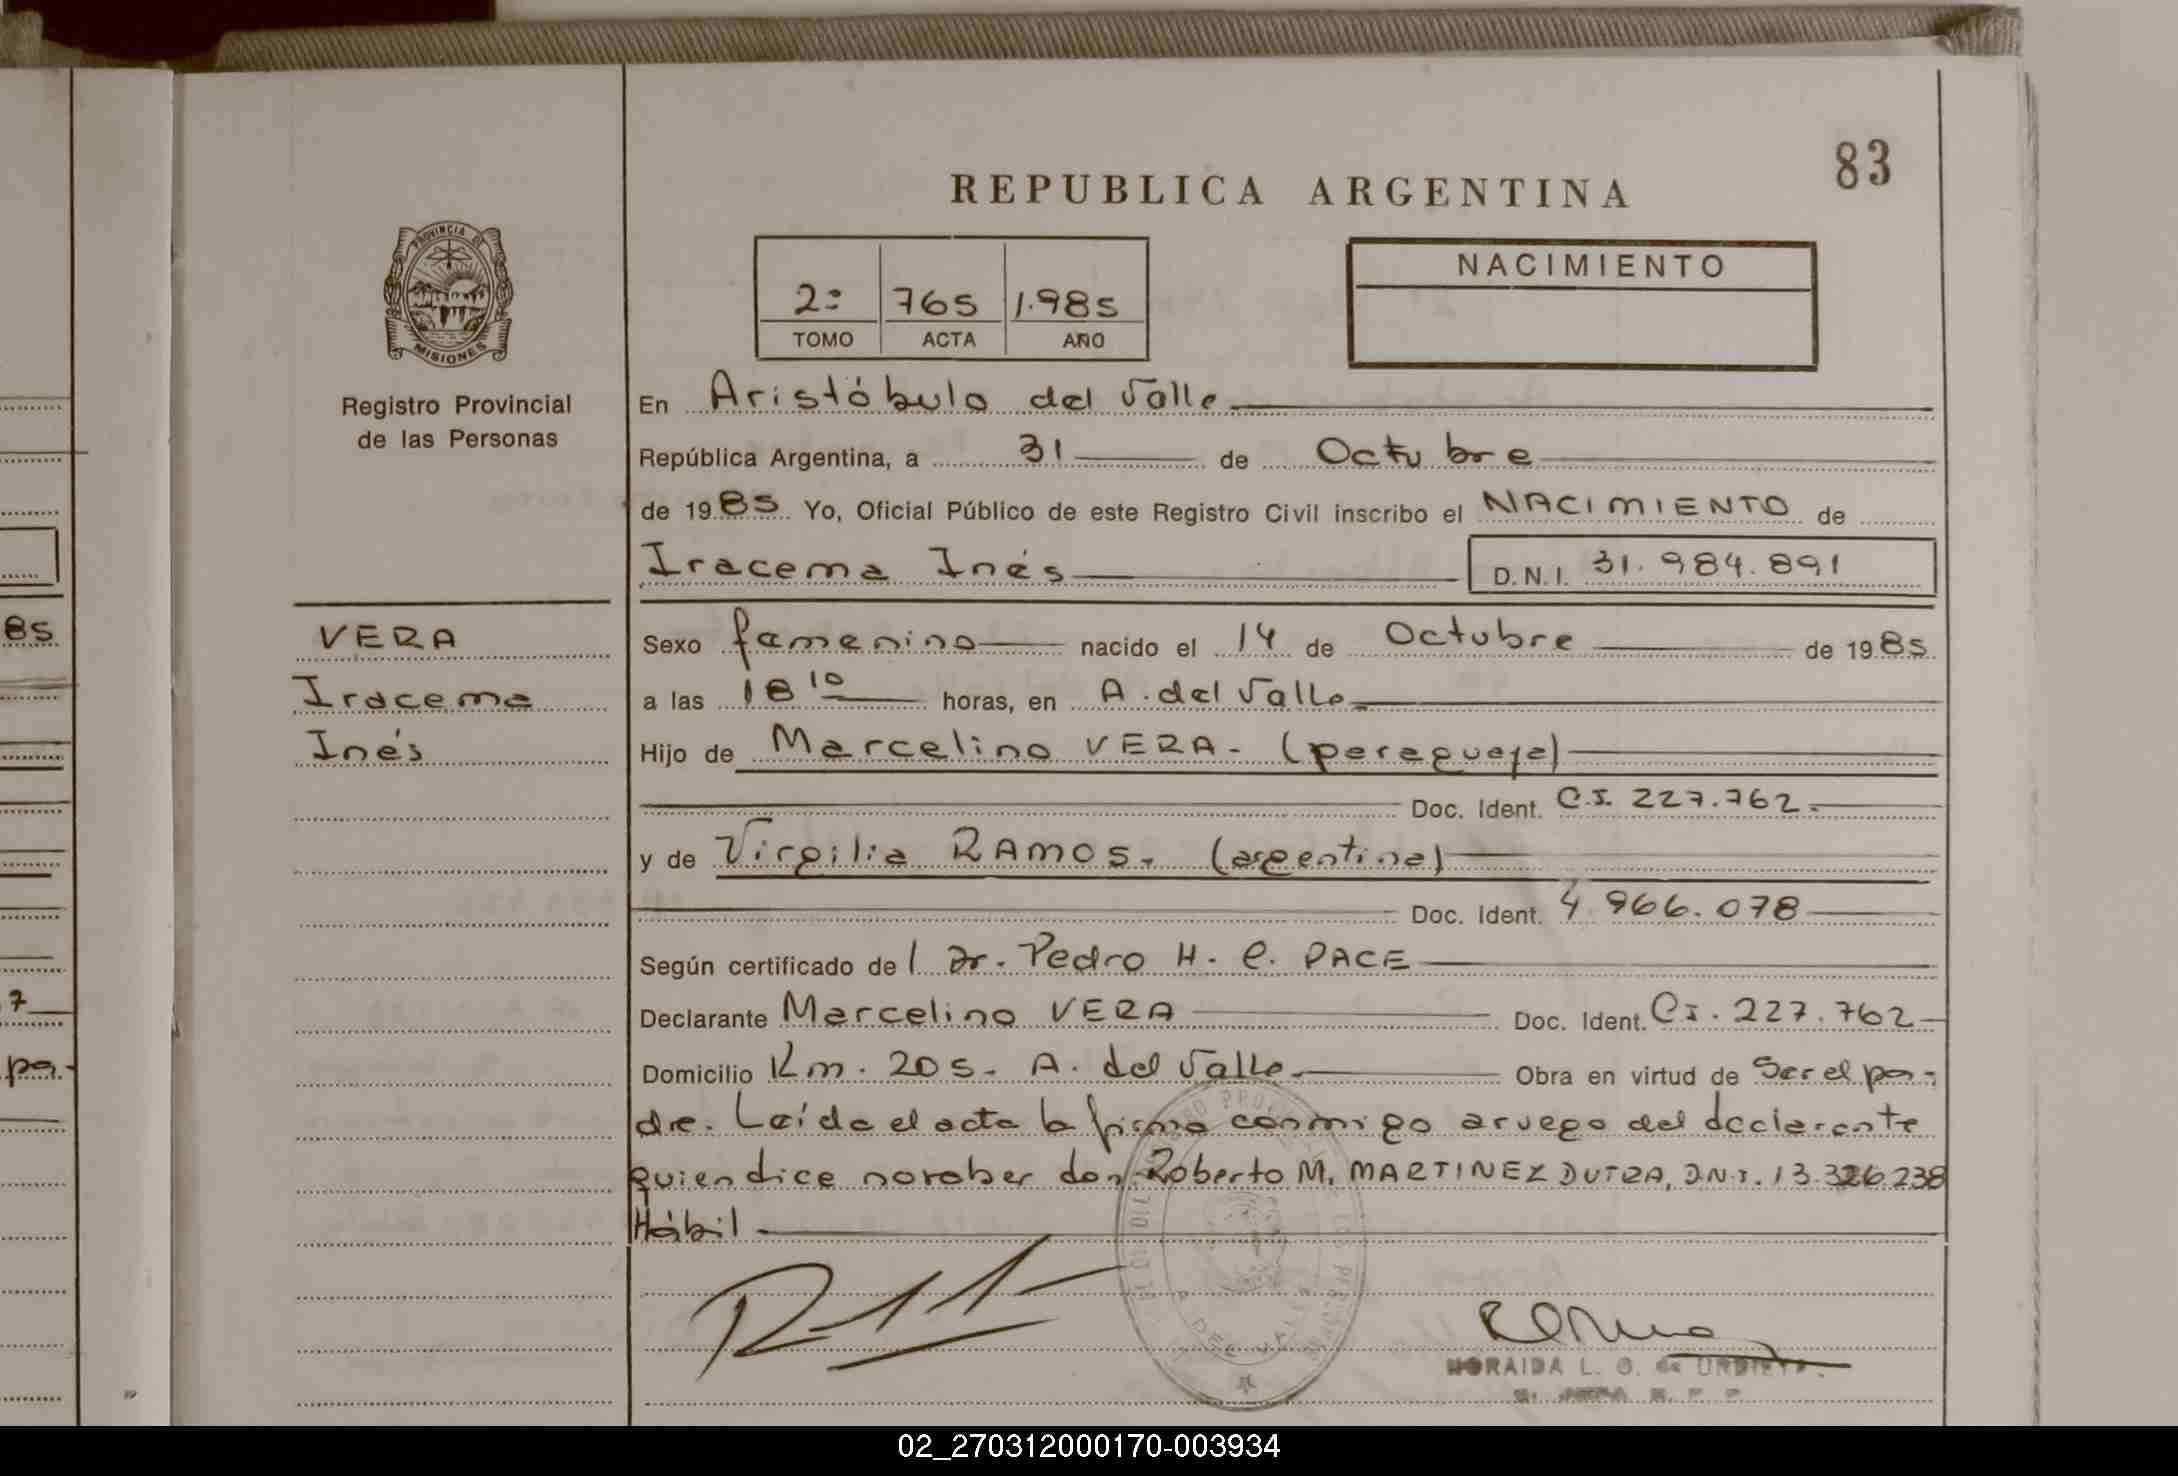 83
REPUBLICA ARGENTINA
PROVINCIA DE
MISIONES
Registro Provincial
de las Personas
2º 765 1.985
TOMO ACTA AÑO
NACIMIENTO
En Aristóbulo del Valle
República Argentina, a 31 de Octubre
de 1985 Yo, Oficial Público de este Registro Civil inscribo el NACIMIENTO de
Iracema Inés D.N.I. 31.984.891
85
VERA
Iracema
Inés
Sexo femenino nacido el 14 de Octubre de 1985
a las 18 10 horas, en A. del Valle
Hijo de Marcelino VERA. (paraguaya)
Doc. Ident. C.I. 227.762.
y de Virgilia RAMOS. (argentina)
Doc. Ident. 4.966.078
Según certificado del Dr. Pedro H. C. PACE
Declarante Marcelino VERA Doc. Ident. CI. 227.762
7
Domicilio Km. 205. A. del Valle. Obra en virtud de Ser el pa-
pa-
dre. Leída el acta la firma conmigo a ruego del declarante
quien dice no saber don Roberto M. MARTINEZ DUTRA, D.N.I. 13.326.238
Hábil
DEL VALLE
MORAIDA L. G. de
02_270312000170-003934